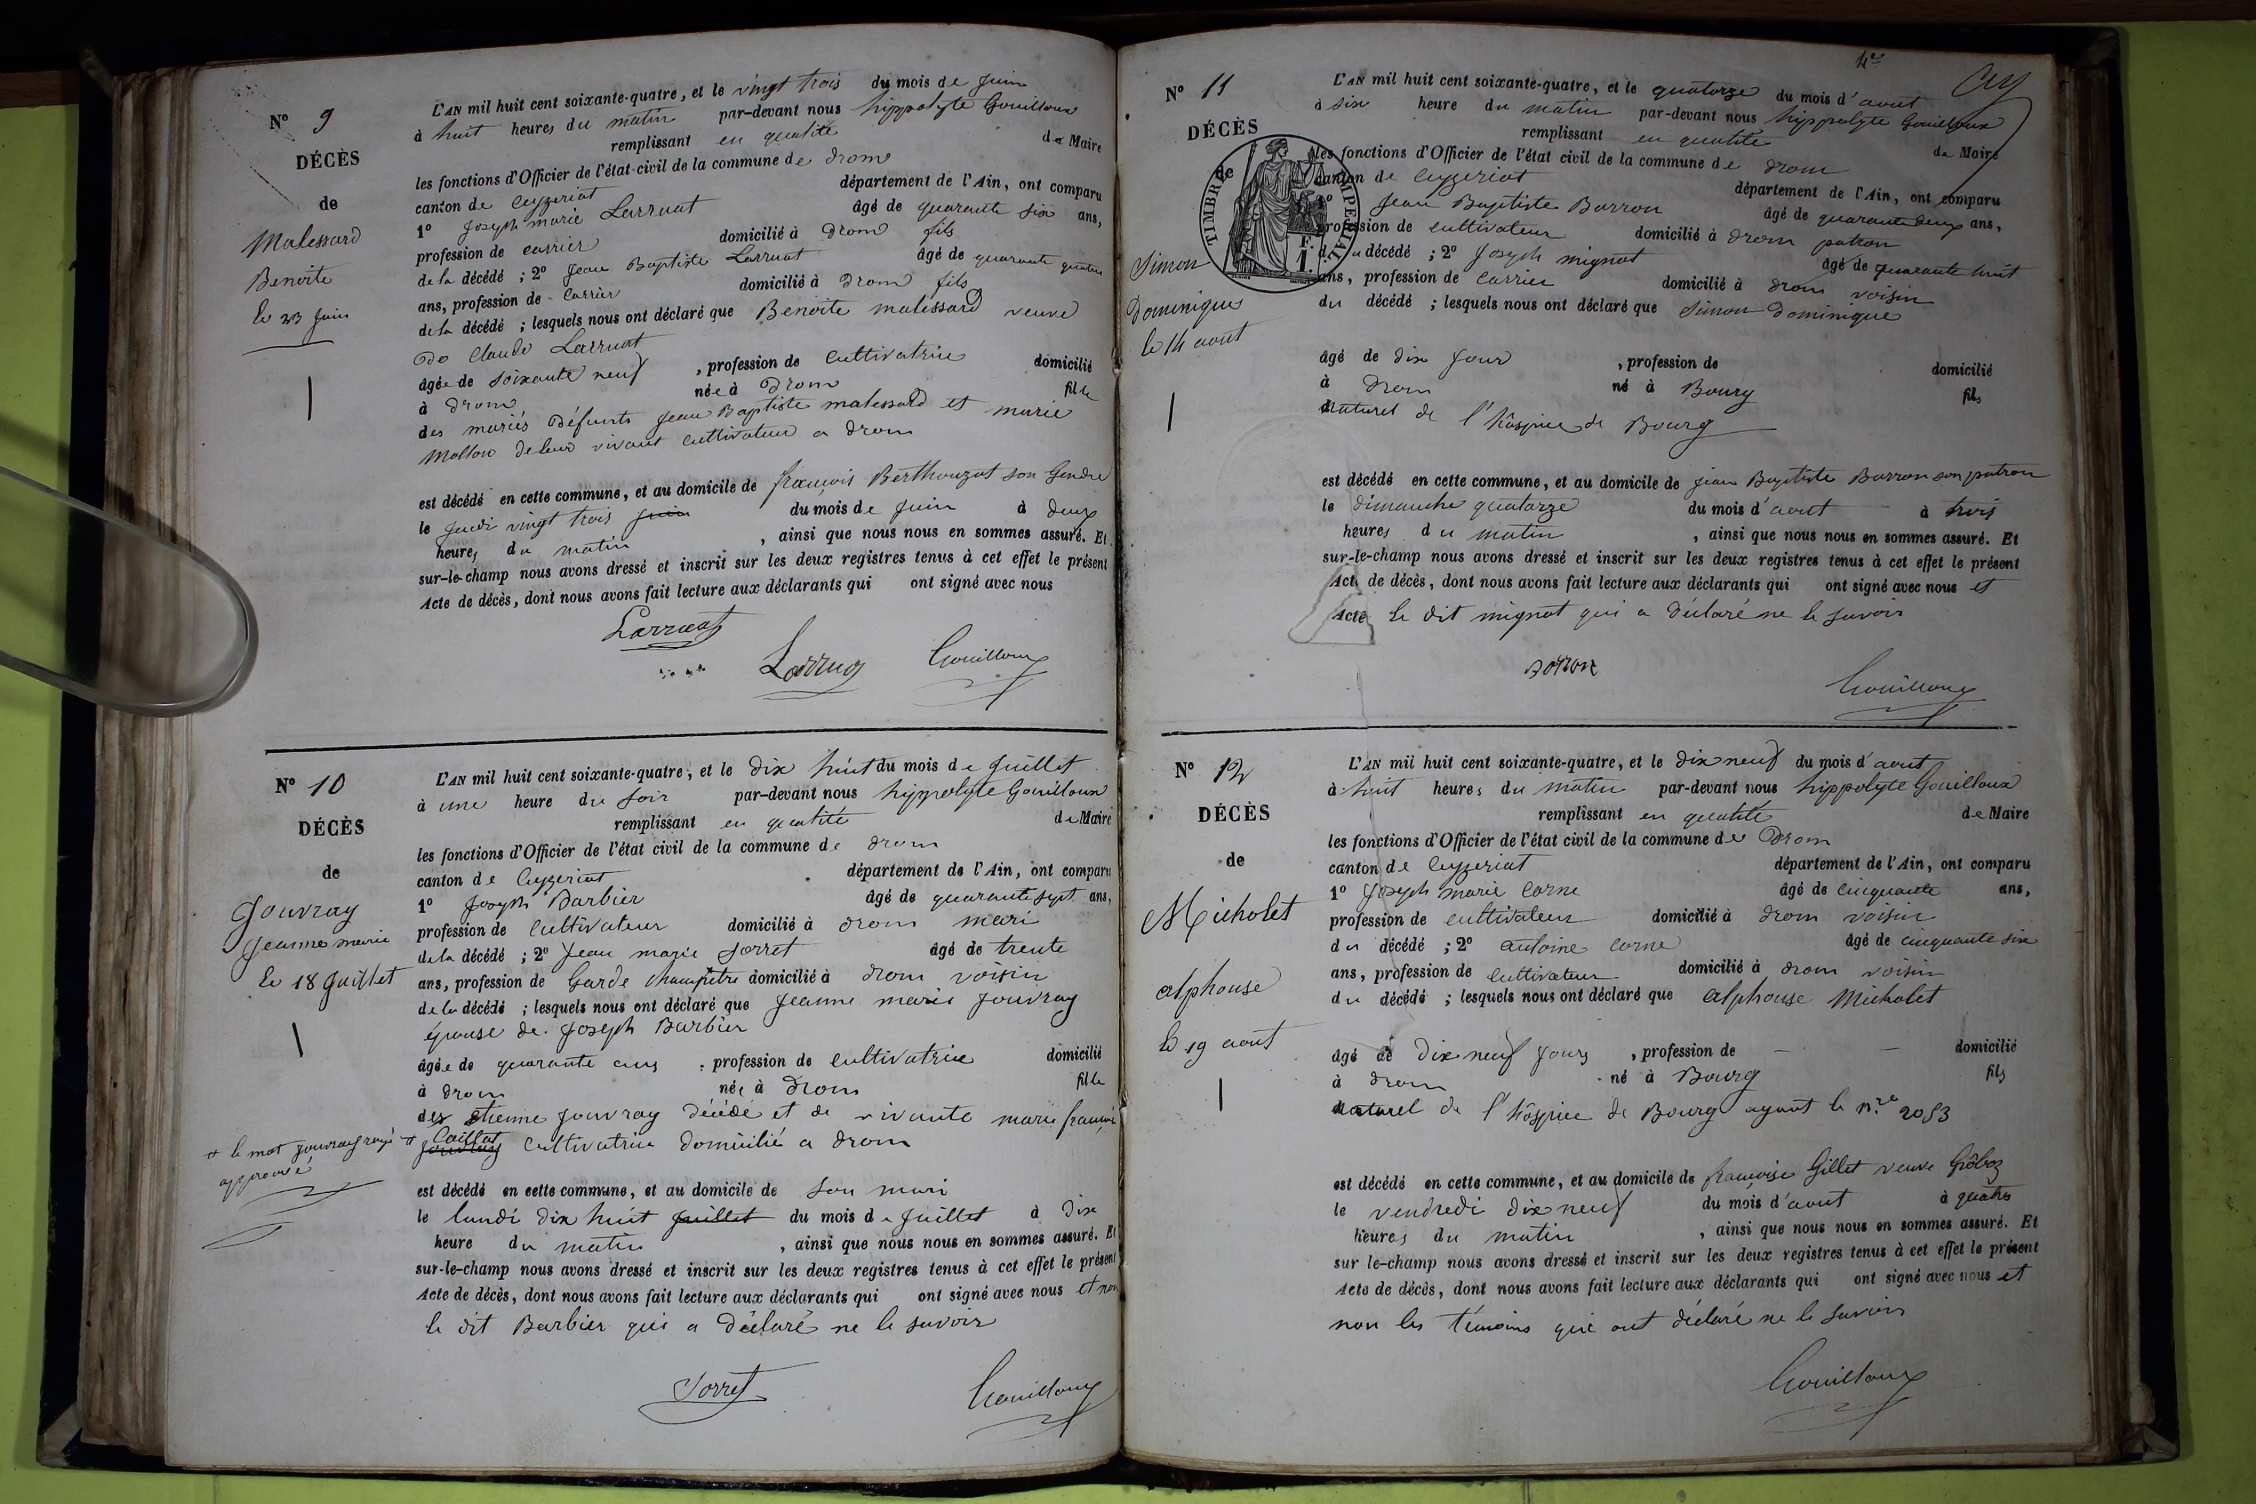 N° 9
DÉCÈS
de
Malessard
Benoite
le 23 juin
L'AN mil huit cent soixante-quatre, et le vingt trois du mois de juin
à huit heures du matin par-devant nous hippolyte Gouilloux
remplissant en qualité de Maire
les fonctions d'Officier de l'état-civil de la commune de Drom
canton de Ceyzeriat département de l'Ain, ont comparu
1° Joseph marie Larruat âgé de quarante six ans,
profession de carrier domicilié à Drom fils
de la décédé ; 2° Jean Baptiste Larruat âgé de quarante quatre
ans, profession de Carrier domicilié à Drom fils
de la décédé ; lesquels nous ont déclaré que Benoite malessard veuve
De Claude Larruat
âgée de soixante neuf , profession de Cultivatrice domicilié
à Drom née à Drom fille
des mariés Défunts Jean Baptiste malessard et marie
de leur vivant cultivateur a Drom
est décédé en cette commune, et au domicile de françois Berthouzat son Gendre
le Jeudi vingt trois juin du mois de juin à deux
heures du matin , ainsi que nous nous en sommes assuré. Et
sur-le-champ nous avons dressé et inscrit sur les deux registres tenus à cet effet le présent
Acte de décès, dont nous avons fait lecture aux déclarants qui ont signé avec nous
Larruat
Larruat Gouilloux
N° 10
DÉCÈS
de
Jouvray
Jeanne marie
le 18 Juillet
L'AN mil huit cent soixante-quatre, et le dix huit du mois de Juillet
à une heure du soir par-devant nous hippolyte Gouilloux
remplissant en qualité de Maire
les fonctions d'Officier de l'état civil de la commune de Drom
canton de Ceyzeriat département de l'Ain, ont comparu
1° Joseph Barbier âgé de quarante sept ans,
profession de Cultivateur domicilié à Drom mari
de la décédé ; 2° Jean marie Sorret âgé de trente
ans, profession de Garde champêtre domicilié à Drom voisin
de la décédé ; lesquels nous ont déclaré que Jeanne marie Jouvray
épouse de Joseph Barbier
âgée de quarante ans , profession de cultivatrice domicilié
à Drom née à Drom fille
des etienne Jouvray Décédé et de vivante marie françoise
+ Caillat Jouvray Cultivatrice domicilié a Drom
+ le mot Jouvray rayé
approuvé
est décédé en cette commune, et au domicile de son mari
le lundi dix huit Juillet du mois de Juillet à Dix
heure du matin , ainsi que nous nous en sommes assuré. Et
sur-le-champ nous avons dressé et inscrit sur les deux registres tenus à cet effet le présent
Acte de décès, dont nous avons fait lecture aux déclarants qui ont signé avec nous et non
le dit Barbier qui a Déclaré ne le savoir
Sorret Gouilloux
N° 11
DÉCÈS
de
TIMBRE IMPERIAL
1 F.
Simon
Dominique
le 14 aout
L'AN mil huit cent soixante-quatre, et le quatorze du mois d'aout
à six heure du matin par-devant nous hippolyte Gouilloux
remplissant en qualité de Maire
les fonctions d'Officier de l'état civil de la commune de Drom
canton de Ceyzeriat département de l'Ain, ont comparu
1° Jean Baptiste Barron âgé de quarante deux ans,
profession de cultivateur domicilié à Drom patron
du décédé ; 2° Joseph mignot âgé de quarante huit
ans, profession de Carrier domicilié à Drom voisin
du décédé ; lesquels nous ont déclaré que Simon Dominique
âgé de dix jour , profession de domicilié
à Drom né à Bourg fils
naturel de l'hôspice de Bourg
est décédé en cette commune, et au domicile de Jean Baptiste Barron son patron
le dimanche quatorze du mois d'aout à trois
heures du matin , ainsi que nous nous en sommes assuré. Et
sur-le-champ nous avons dressé et inscrit sur les deux registres tenus à cet effet le présent
Acte de décès, dont nous avons fait lecture aux déclarants qui ont signé avec nous et
Acte le dit mignot qui a Déclaré ne le savoir
Gouilloux
N° 12
DÉCÈS
de
Micholet
alphonse
le 19 aout
L'AN mil huit cent soixante-quatre, et le dix neuf du mois d'aout
à huit heures du matin par-devant nous hippolyte Gouilloux
remplissant en qualité de Maire
les fonctions d'Officier de l'état civil de la commune de Drom
canton de Ceyzeriat département de l'Ain, ont comparu
1° Joseph marie Corne âgé de cinquante ans,
profession de cultivateur domicilié à Drom voisin
du décédé ; 2° antoine Corne âgé de cinquante six
ans, profession de Cultivateur domicilié à Drom voisin
du décédé ; lesquels nous ont déclaré que alphonse Micholet
âgé de Dix neuf jours , profession de — — domicilié
à Drom né à Bourg fils
naturel de l'hôspice de Bourg ayant le n.ro 2053
est décédé en cette commune, et au domicile de françoise Gillet veuve Grôboz
le vendredi dix neuf du mois d'aout à quatre
heures du matin , ainsi que nous nous en sommes assuré. Et
sur le-champ nous avons dressé et inscrit sur les deux registres tenus à cet effet le présent
Acte de décès, dont nous avons fait lecture aux déclarants qui ont signé avec nous et
non les témoins qui ont déclaré ne le savoir
Gouilloux